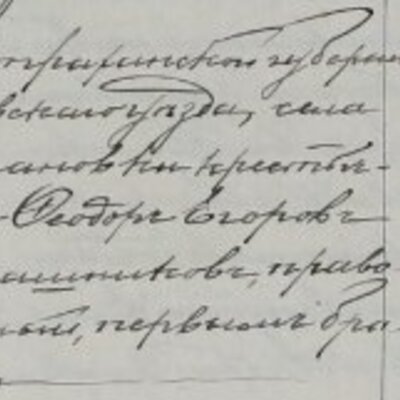 губерні
вскаго уѣзда, села
ановки крестья-
Ѳеодоръ Егоровъ
ашниковъ, право-
ный, первымъ бра-